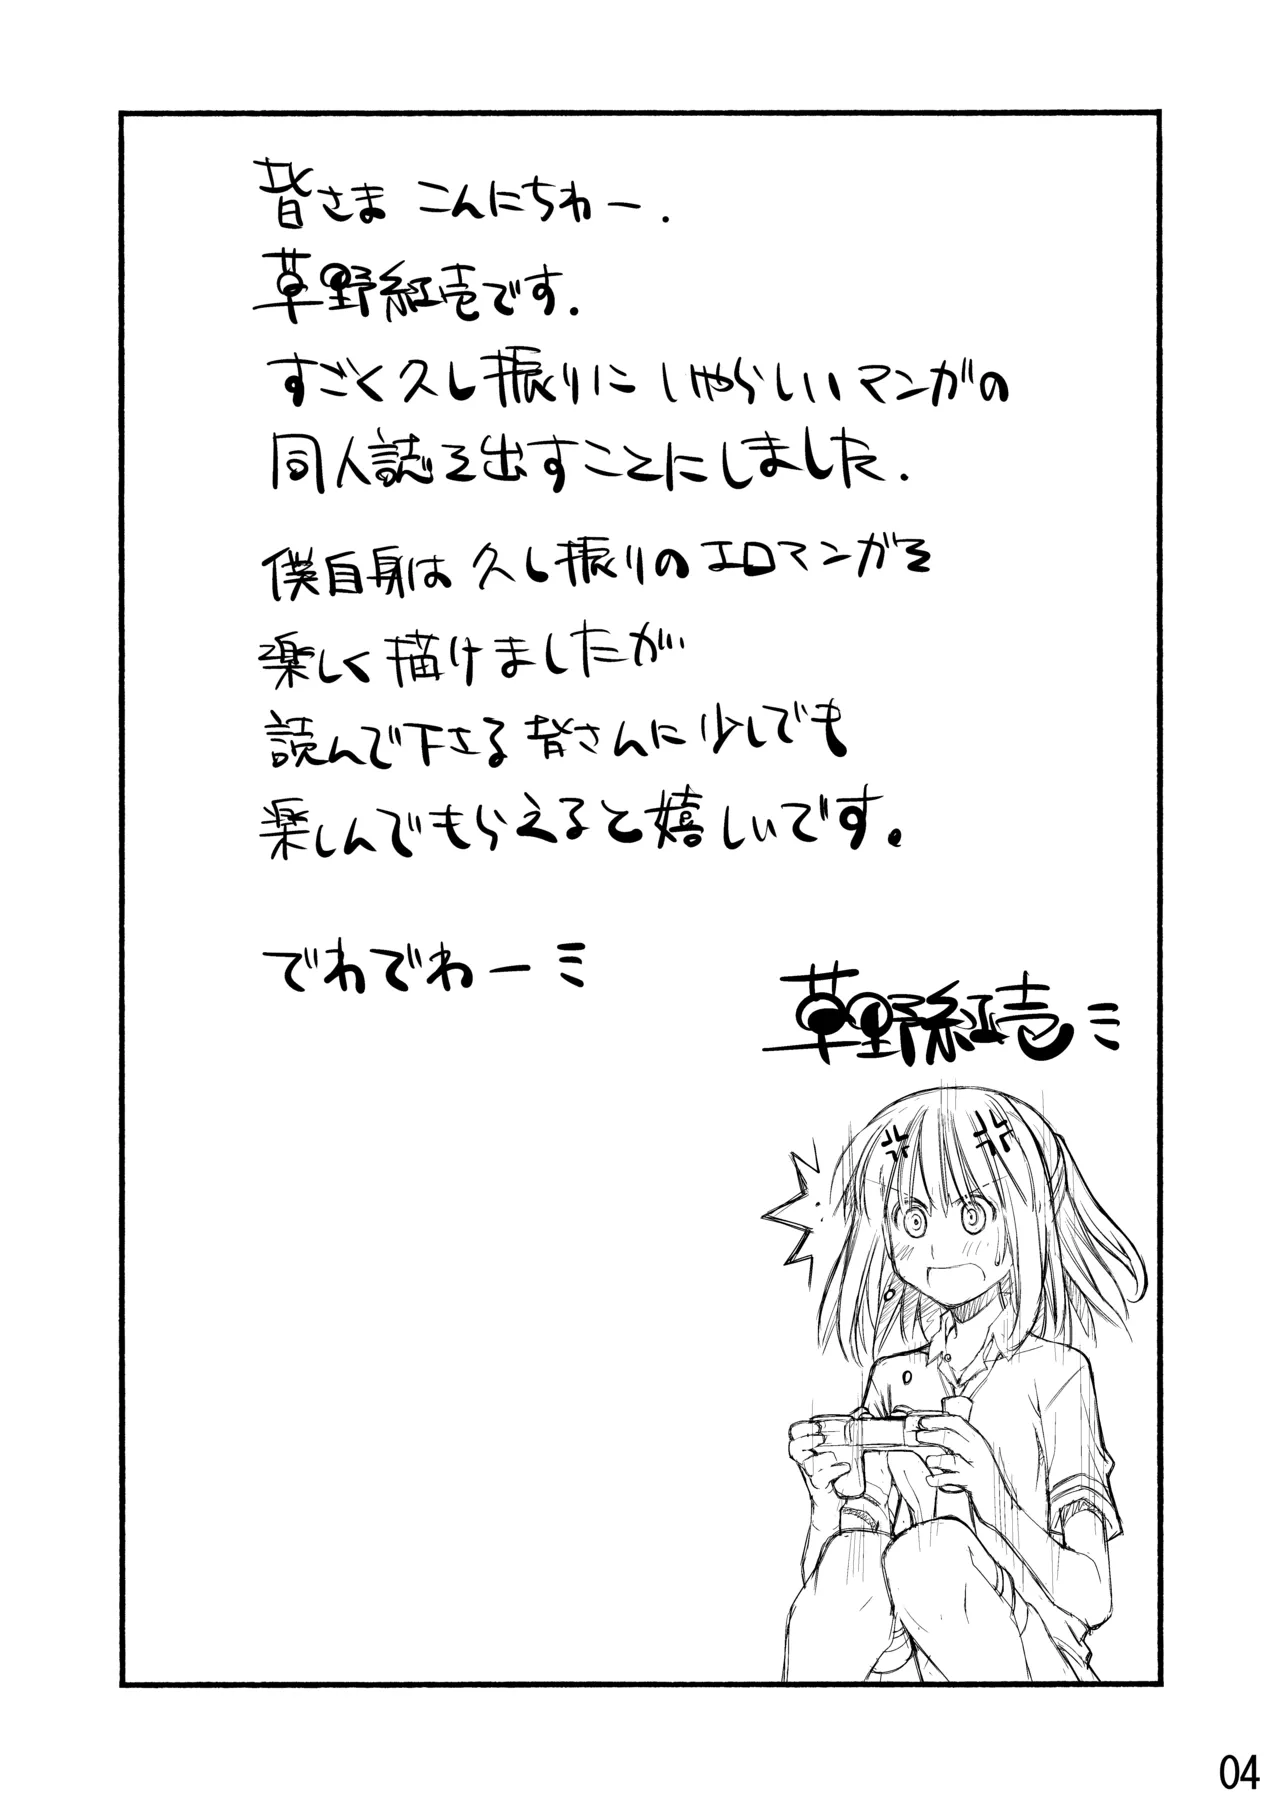 皆さま こんにちわー.
草野紅壱です.
すごく久し振りに いやらしいマンガの
同人誌を出すことにしました.
僕自身は 久し振りの エロマンガを
楽しく描けましたが
読んで下さる皆さんに少しでも
楽しんでもらえると嬉しいです。
でわでわーミ
草野紅壱ミ
04